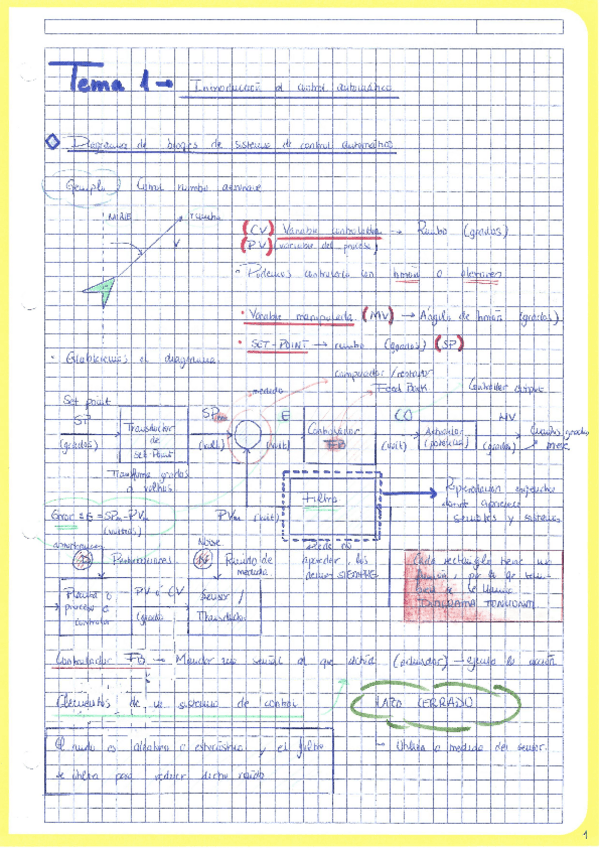 Tema 1 → Introducción al control automático
Diagramas de bloques de sistemas de control automático
Ejemplo) Control rumbo aeronave
NORTE
rumbo
(CV) Variable controlada → Rumbo (grados)
(PV) (variable del proceso)
• Podemos controlarla con timón o alerones
• Variable manipulada (MV) → Angulo de timón (grados)
• SET-POINT → rumbo (grados) (SP)
• Establecemos el diagrama
comparador / restador
medido
Feed Back
Set point
SP
(grados)
Transductor de Set-Point
SPm
(volt)
E
(volt)
Controlador FB
CO
(volt)
Actuador (potencia)
MV
(grados)
Transforma grados a voltios
Error = E = SPm - PVm
(voltios)
PVm (volt)
Filtro
Representación esquemática donde aparecen señales y sistemas
Perturbaciones
Noise
Ruido de medida
puede no aparecer, los
Cada rectángulo tiene una función, por lo que también se le llama
Planta o proceso a controlar
PV ó CV
(grados)
Sensor / Transductor
Controlador FB → Mandar una señal al que actúa (actuador) → ejecuta la acción
Elementos de un sistema de control
LAZO CERRADO
El ruido es aleatorio o estocástico y el filtro
se utiliza para reducir dicho ruido
↳ Utiliza la medida del sensor.
1